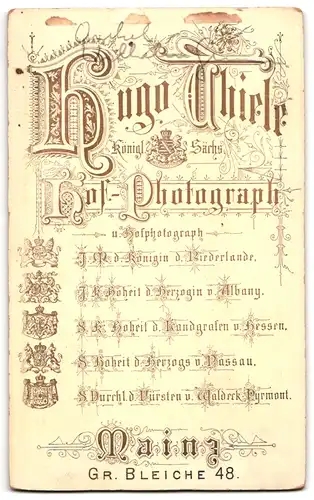 Hugo Thiele
Königl. Sächs.
Hof-Photograph
u. Hofphotograph
I. M. d. Königin d. Niederlande.
I. K. Hoheit d. Herzogin v. Albany.
S. K. Hoheit d. Landgrafen v. Hessen.
S. Hoheit d. Herzogs v. Nassau.
S. Durchl. d. Fürsten v. Waldeck-Pyrmont.
Mainz
GR. BLEICHE 48.